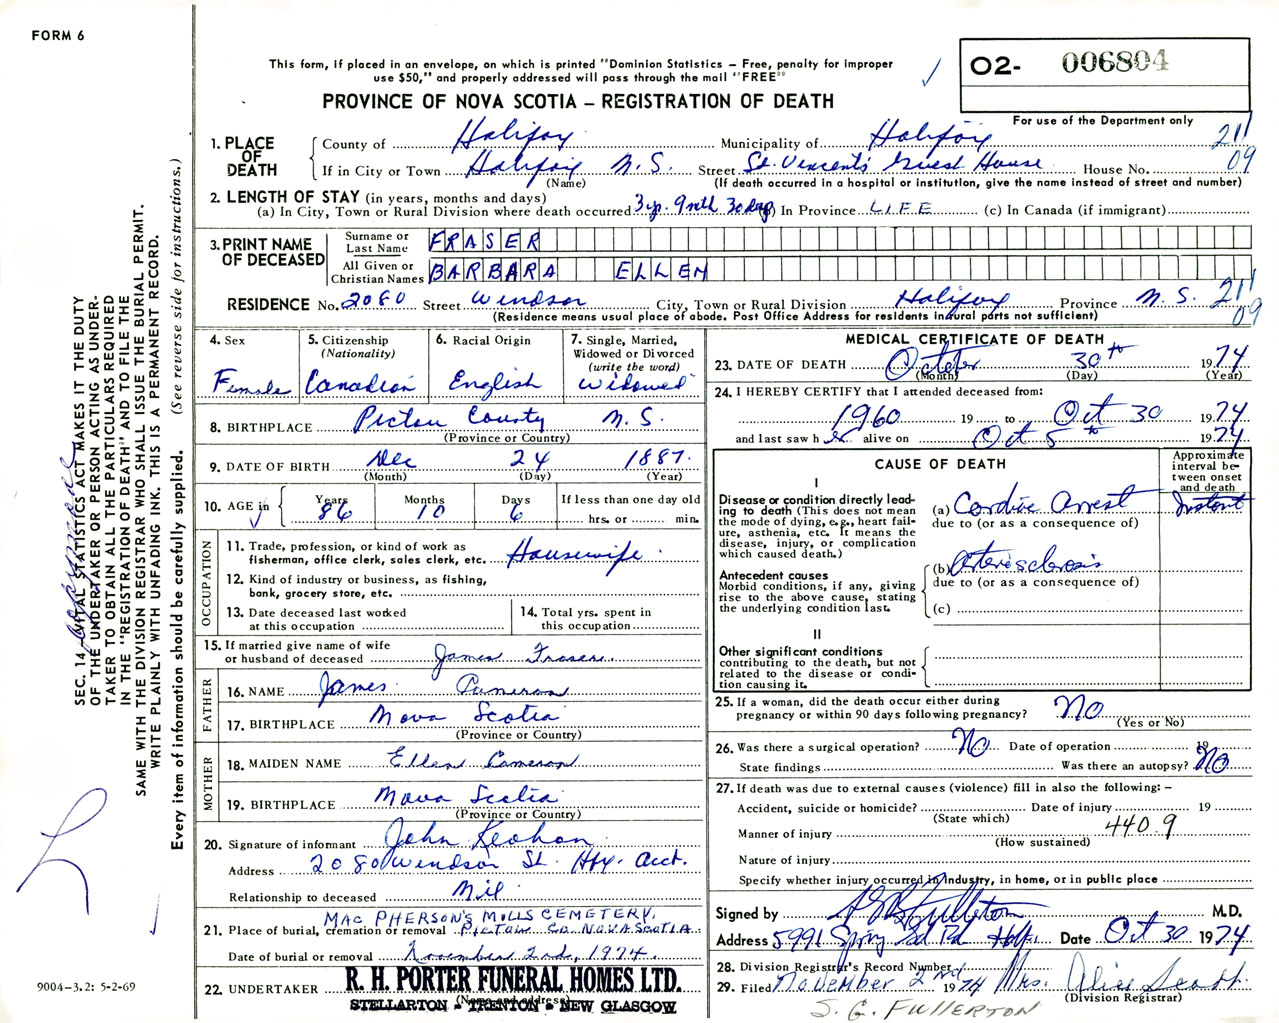 FORM 6
This form, if placed in an envelope, on which is printed "Dominion Statistics – Free, penalty for improper
use $50," and properly addressed will pass through the mail "FREE"
O2- 006804
For use of the Department only
PROVINCE OF NOVA SCOTIA – REGISTRATION OF DEATH
SEC. 14 – VITAL STATISTICS ACT MAKES IT THE DUTY
OF THE UNDERTAKER OR PERSON ACTING AS UNDER-
TAKER TO OBTAIN ALL THE PARTICULARS REQUIRED
IN THE "REGISTRATION OF DEATH" AND TO FILE THE
SAME WITH THE DIVISION REGISTRAR WHO SHALL ISSUE THE BURIAL PERMIT.
WRITE PLAINLY WITH UNFADING INK. THIS IS A PERMANENT RECORD.
Every item of information should be carefully supplied. (See reverse side for instructions.)
1. PLACE OF DEATH County of Halifax Municipality of Halifax
211
09
If in City or Town Halifax N.S. Street St. Vincent's Guest House House No.
(Name) (If death occurred in a hospital or institution, give the name instead of street and number)
2. LENGTH OF STAY (in years, months and days)
(a) In City, Town or Rural Division where death occurred 3 yr. 9 mth 30 day (b) In Province LIFE (c) In Canada (if immigrant)
3. PRINT NAME OF DECEASED Surname or Last Name FRASER
All Given or Christian Names BARBARA ELLEN
RESIDENCE No. 2080 Street Windsor City, Town or Rural Division Halifax Province N.S. 211
09
(Residence means usual place of abode. Post Office Address for residents in rural parts not sufficient)
4. Sex Female
5. Citizenship (Nationality) Canadian
6. Racial Origin English
7. Single, Married, Widowed or Divorced (write the word) Widowed
8. BIRTHPLACE Pictou County N.S.
(Province or Country)
9. DATE OF BIRTH Dec 24 1887.
(Month) (Day) (Year)
10. AGE in Years 86 Months 10 Days 6 If less than one day old hrs. or min.
OCCUPATION
11. Trade, profession, or kind of work as
fisherman, office clerk, sales clerk, etc. Housewife
12. Kind of industry or business, as fishing,
bank, grocery store, etc.
13. Date deceased last worked
at this occupation
14. Total yrs. spent in
this occupation
15. If married give name of wife
or husband of deceased James Fraser
FATHER
16. NAME James Cameron
17. BIRTHPLACE Nova Scotia
(Province or Country)
MOTHER
18. MAIDEN NAME Ellen Cameron
19. BIRTHPLACE Nova Scotia
(Province or Country)
20. Signature of informant John Keohan
Address 2080 Windsor St. Hfx. Acct.
Relationship to deceased Nil
21. Place of burial, cremation or removal MAC PHERSON'S MILLS CEMETERY,
PICTOU CO. NOVA SCOTIA
Date of burial or removal November 2nd, 1974.
22. UNDERTAKER R. H. PORTER FUNERAL HOMES LTD.
(Name and address)
STELLARTON - TRENTON - NEW GLASGOW
9004-3.2: 5-2-69
MEDICAL CERTIFICATE OF DEATH
23. DATE OF DEATH October 30th 1974
(Month) (Day) (Year)
24. I HEREBY CERTIFY that I attended deceased from:
1960 19 to Oct 30 1974
and last saw her alive on Oct 5th 1974
CAUSE OF DEATH
Approximate interval between onset and death
I
Disease or condition directly lead-
ing to death (This does not mean
the mode of dying, e.g., heart fail-
ure, asthenia, etc. It means the
disease, injury, or complication
which caused death.)
(a) Cardiac Arrest Instant
due to (or as a consequence of)
Antecedent causes
Morbid conditions, if any, giving
rise to the above cause, stating
the underlying condition last.
(b) Arteriosclerosis
due to (or as a consequence of)
(c)
II
Other significant conditions
contributing to the death, but not
related to the disease or condi-
tion causing it.
25. If a woman, did the death occur either during
pregnancy or within 90 days following pregnancy? No
(Yes or No)
26. Was there a surgical operation? No Date of operation 19
State findings Was there an autopsy? No
27. If death was due to external causes (violence) fill in also the following: –
Accident, suicide or homicide? Date of injury 19
(State which) 440.9
Manner of injury
(How sustained)
Nature of injury
Specify whether injury occurred in Industry, in home, or in public place
Signed by S G Fullerton M.D.
Address 5991 Spring Gd Rd Halifax Date Oct 30 1974
28. Division Registrar's Record Number
29. Filed November 2nd 1974 Mrs. Alice Scott
(Division Registrar)
S. G. FULLERTON